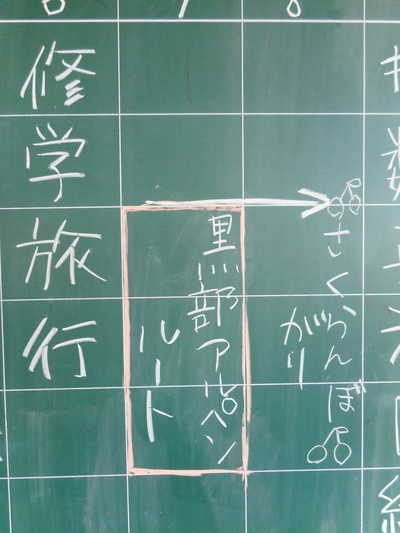 修学旅行
黒部アルペン
ルート
さくらんぼ
がり